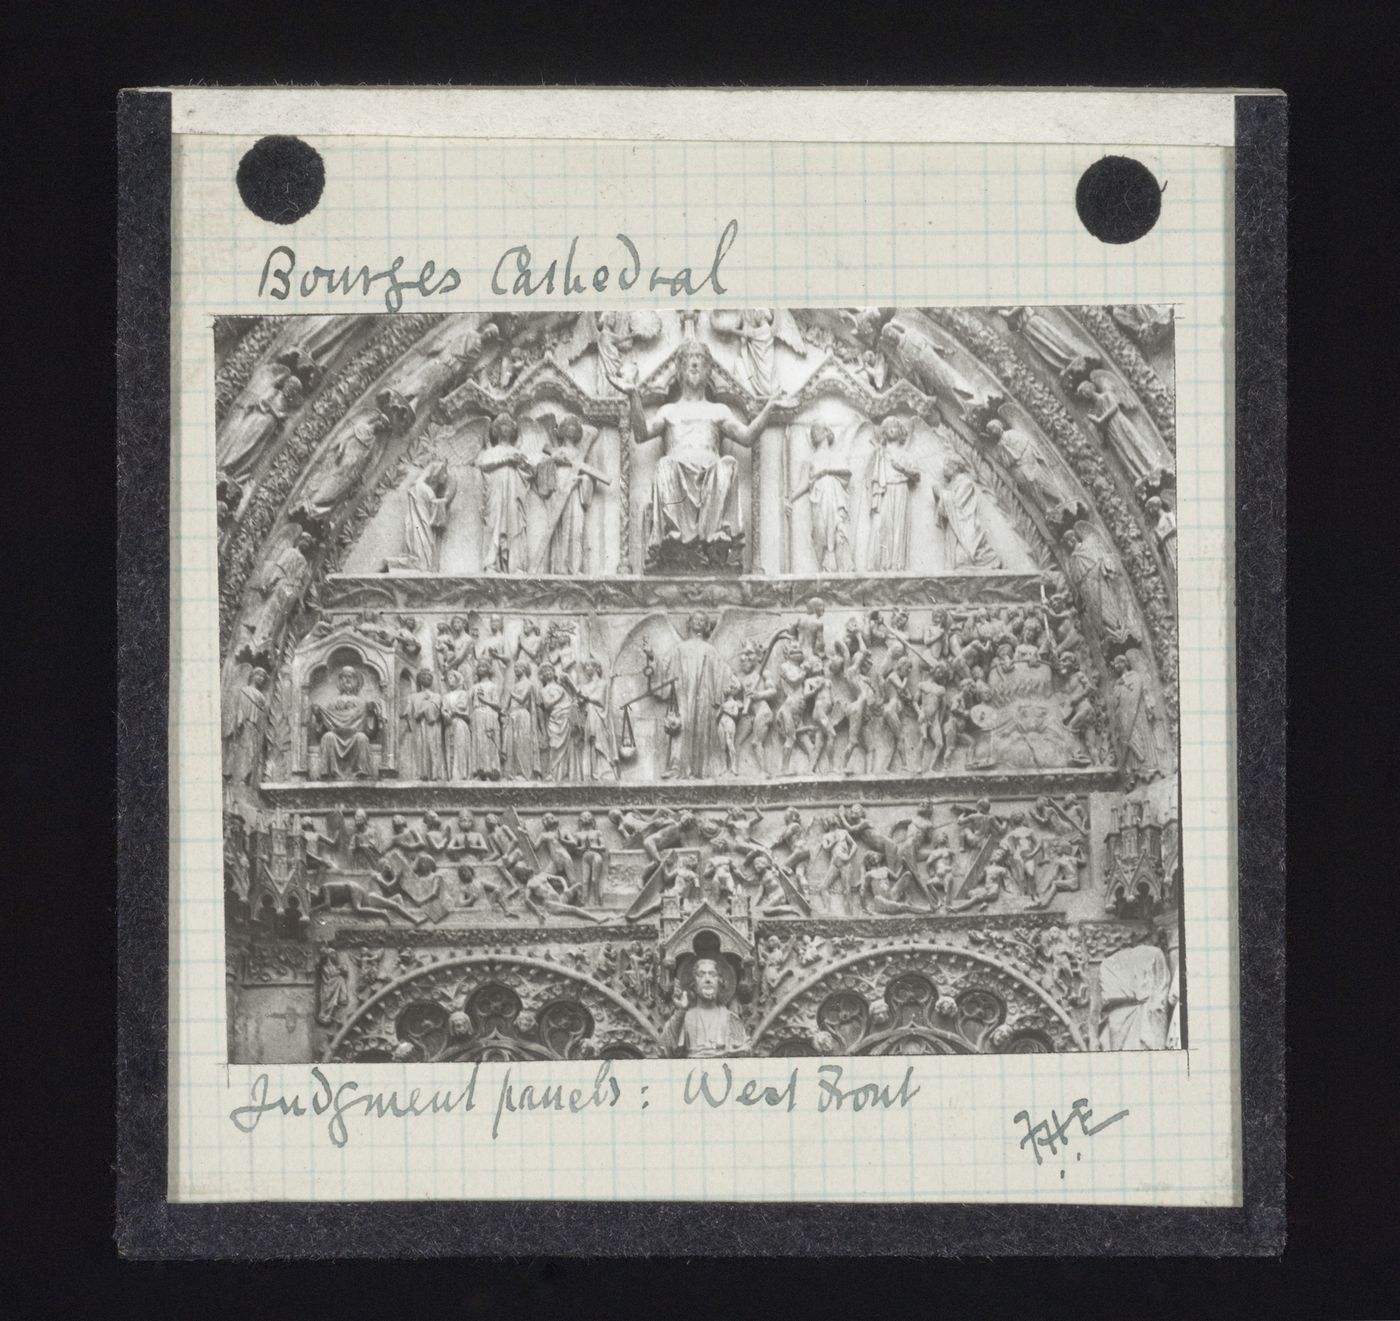 Bourges Cathedral
Judgment panels: West Front